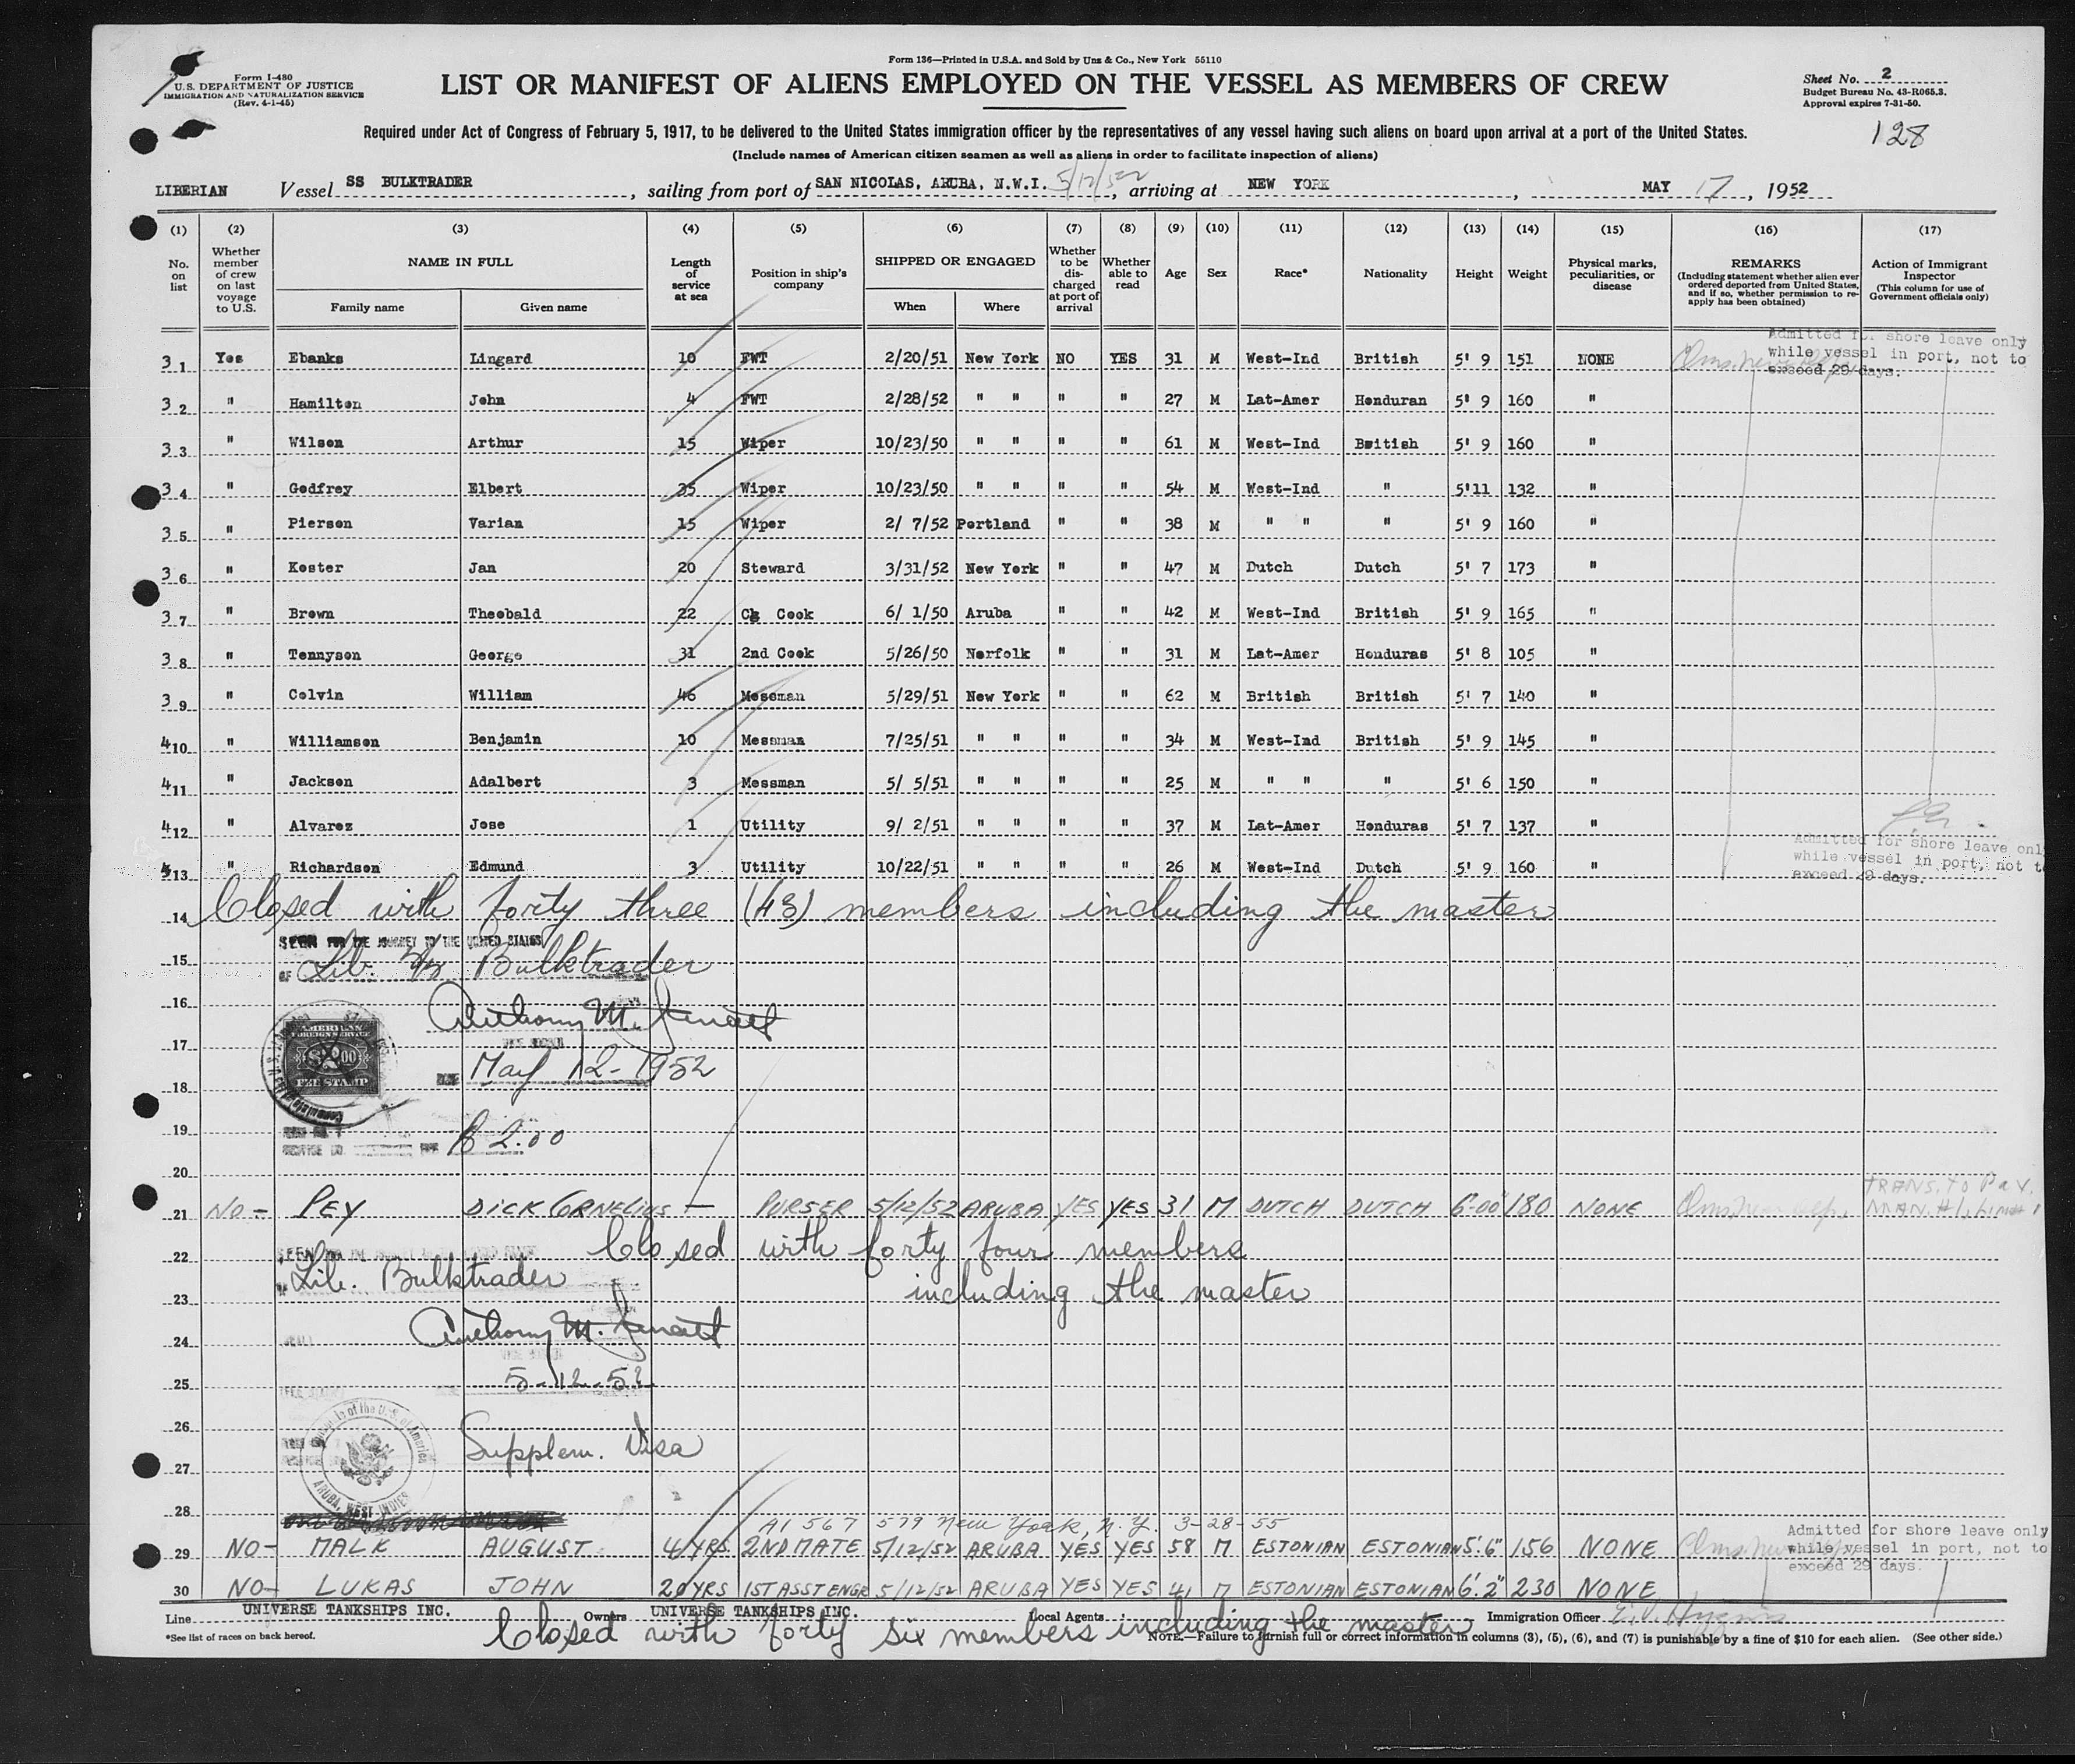 Form I-480
U.S. DEPARTMENT OF JUSTICE
IMMIGRATION AND NATURALIZATION SERVICE
(Rev. 4-1-45)
Form 136—Printed in U.S.A. and Sold by Unz & Co., New York 55110
LIST OR MANIFEST OF ALIENS EMPLOYED ON THE VESSEL AS MEMBERS OF CREW
Sheet No. 2
Budget Bureau No. 43-R065.3.
Approval expires 7-31-50.
128
Required under Act of Congress of February 5, 1917, to be delivered to the United States immigration officer by the representatives of any vessel having such aliens on board upon arrival at a port of the United States.
(Include names of American citizen seamen as well as aliens in order to facilitate inspection of aliens)
LIBERIAN Vessel SS BULKTRADER, sailing from port of SAN NICOLAS, ARUBA, N.W.I. 5/12/52, arriving at NEW YORK, MAY 17, 1952
(1) (2) (3) (4) (5) (6) (7) (8) (9) (10) (11) (12) (13) (14) (15) (16) (17)
No. on list
Whether member of crew on last voyage to U.S.
NAME IN FULL
Family name Given name
Length of service at sea
Position in ship's company
SHIPPED OR ENGAGED
When Where
Whether to be discharged at port of arrival
Whether able to read
Age Sex Race* Nationality Height Weight
Physical marks, peculiarities, or disease
REMARKS
(Including statement whether alien ever ordered deported from United States, and if so, whether permission to re-apply has been obtained)
Action of Immigrant Inspector
(This column for use of Government officials only)
Admitted for shore leave only
while vessel in port, not to
exceed 29 days.
3 1 Yes Ebanks Lingard 10 FWT 2/20/51 New York NO YES 31 M West-Ind British 5' 9 151 NONE
3 2 " Hamilton John 4 FWT 2/28/52 " " " " 27 M Lat-Amer Honduran 5' 9 160 "
3 3 " Wilson Arthur 15 Wiper 10/23/50 " " " " 61 M West-Ind British 5' 9 160 "
3 4 " Godfrey Elbert 35 Wiper 10/23/50 " " " " 54 M West-Ind " 5'11 132 "
3 5 " Pierson Varian 15 Wiper 2/ 7/52 Portland " " 38 M " " " 5' 9 160 "
3 6 " Koster Jan 20 Steward 3/31/52 New York " " 47 M Dutch Dutch 5' 7 173 "
3 7 " Brown Theobald 22 Cg Cook 6/ 1/50 Aruba " " 42 M West-Ind British 5' 9 165 "
3 8 " Tennyson George 31 2nd Cook 5/26/50 Norfolk " " 31 M Lat-Amer Honduras 5' 8 105 "
3 9 " Colvin William 46 Messman 5/29/51 New York " " 62 M British British 5' 7 140 "
4 10 " Williamson Benjamin 10 Messman 7/25/51 " " " " 34 M West-Ind British 5' 9 145 "
4 11 " Jackson Adalbert 3 Messman 5/ 5/51 " " " " 25 M " " " 5' 6 150 "
4 12 " Alvarez Jose 1 Utility 9/ 2/51 " " " " 37 M Lat-Amer Honduras 5' 7 137 "
13 " Richardson Edmund 3 Utility 10/22/51 " " " " 26 M West-Ind Dutch 5' 9 160 "
Admitted for shore leave onl
while vessel in port, not t
exceed 29 days.
14 Closed with forty three (43) members including the master
SEEN FOR THE JOURNEY TO THE UNITED STATES
15 OF Lib. S/S Bulktrader
16 Anthony M.
17 VICE CONSUL
AMERICAN FOREIGN SERVICE $2.00 FEE STAMP
DATE May 12-1952
18
19 $ 2.00
20
21 NO- PEY DICK CORNELIUS — PURSER 5/12/52 ARUBA YES YES 31 M DUTCH DUTCH 6-00" 180 NONE TRANS. TO PAX. MAN. #1, LINE 1
22 Closed with forty four members
Lib. Bulktrader
23 including the master
24 Anthony M.
VICE CONSUL
25 5-12-52
26 Supplem. Visa
of the U.S. of America ARUBA, WEST INDIES
27
28
A1 567 579 New York, N.Y. 3-28-55
29 NO- MALK AUGUST 4 YRS 2ND MATE 5/12/52 ARUBA YES YES 58 M ESTONIAN ESTONIAN 5'.6" 156 NONE
Admitted for shore leave only
while vessel in port, not to
exceed 29 days.
30 NO- LUKAS JOHN 20 YRS 1ST ASST ENGR 5/12/52 ARUBA YES YES 41 M ESTONIAN ESTONIAN 6'.2" 230 NONE
Line UNIVERSE TANKSHIPS INC. Owners UNIVERSE TANKSHIPS INC. Local Agents Immigration Officer
Closed with forty six members including the master
*See list of races on back hereof.
NOTE.—Failure to furnish full or correct information in columns (3), (5), (6), and (7) is punishable by a fine of $10 for each alien. (See other side.)